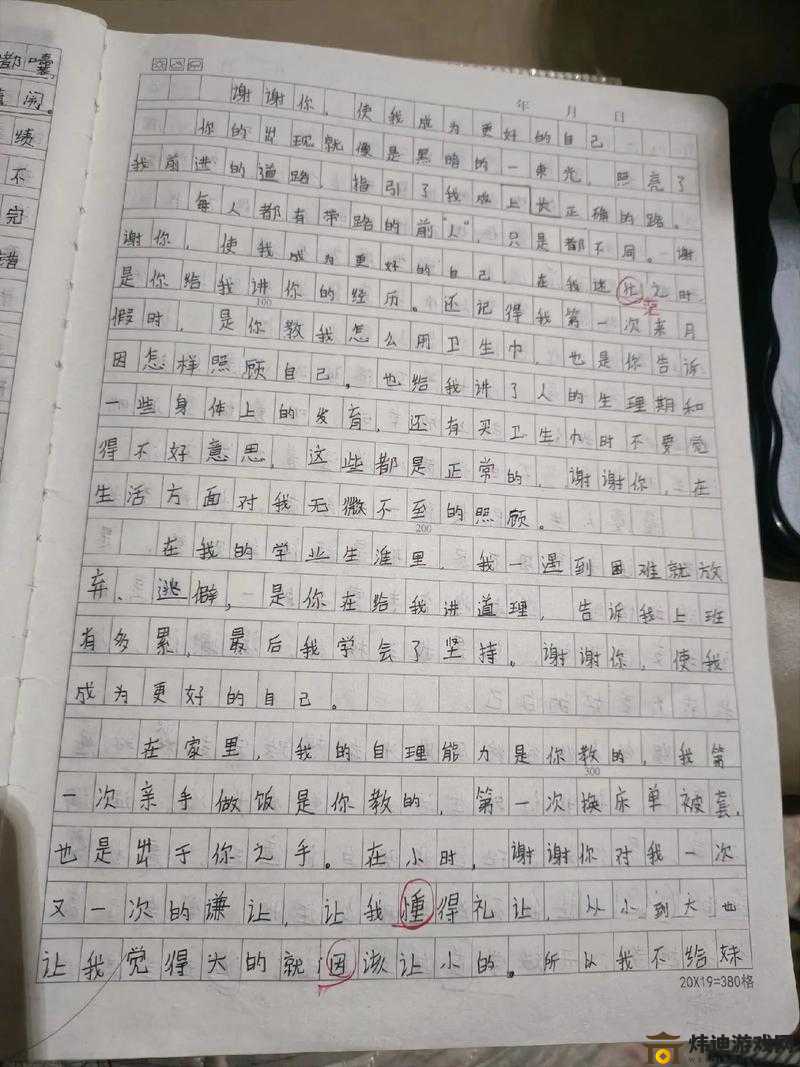 都囔
闹。
绩
不
完
错
年 月 日
谢谢你，使我成为更好的自己
你的出现就像是黑暗的一束光，照亮了
我前进的道路，指引了我成上长正确的路。
每人都有带路的前"人"，只是都不同。谢
谢你，使我成为更好的自己，在我迷 之时，
茫
是你给我讲你的经历。还记得我第一次来月
100
假时，是你教我怎么用卫生巾，也是你告诉
因怎样照顾自己。也给我讲了人的生理期和
一些身体上的发育，还有买卫生巾时不要觉
得不好意思，这些都是正常的，谢谢你，在
生活方面对我无微不至的照顾。
200
在我的学业生涯里，我一遇到困难就放
弃、逃僻，是你在给我讲道理，告诉我上班
有多累，最后我学会了坚持。谢谢你，使我
成为更好的自己。
在家里，我的自理能力是你教的，我第
300
一次亲手做饭是你教的，第一次换床单被套，
也是出于你之手。在小时，谢谢你对我一次
又一次的谦让，让我憧得礼让，从小到大也
让我觉得大的就因该让小的。所以我不给妹
20X19=380格
炜迪游戏网